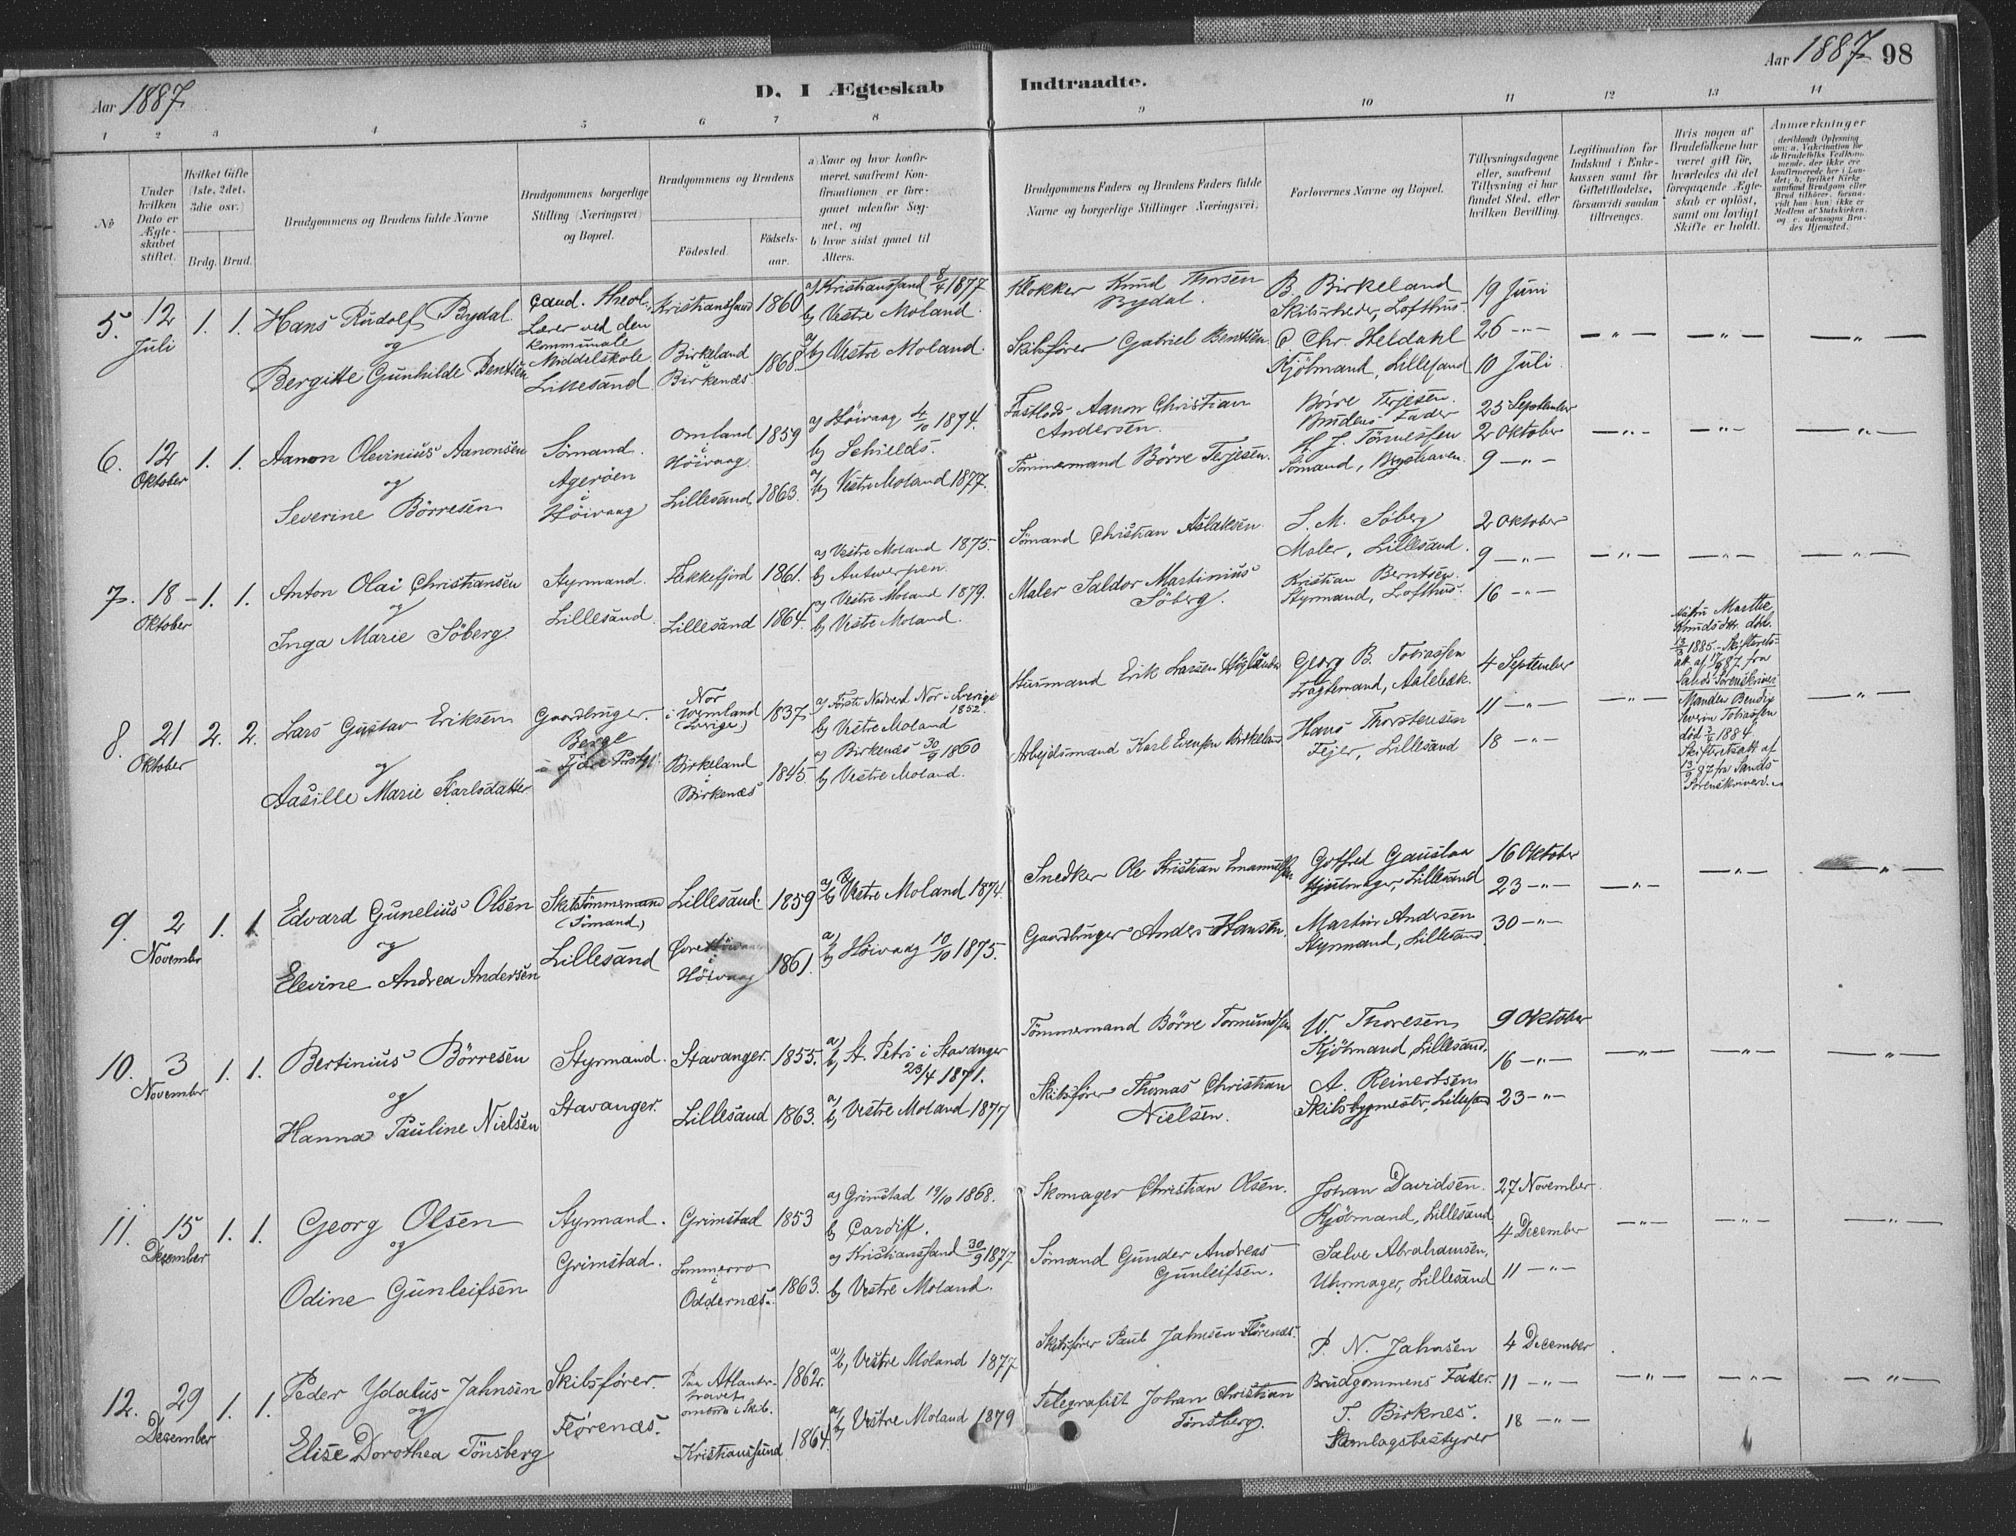 Aar 1887.
D. I Ægteskab Indtraadte.
Aar 1887 98
1 2 3 4 5 6 7 8 9 10 11 12 13 14
No
Under hvilken Dato er Ægteskabet stiftet.
Hvilket Gifte (1ste, 2det, 3die osv.)
Brdg. Brud.
Brudgommens og Brudens fulde Navne
Brudgommens borgerlige Stilling (Næringsvei) og Bopæl.
Brudgommens og Brudens
Födested. Födselsaar.
a) Naar og hvor konfirmeret, saafremt Konfirmationen er foregaaet udenfor Sognet, og
b) hvor sidst gaaet til Alters.
Brudgommens Faders og Brudens Faders fulde Navne og borgerlige Stillinger (Næringsvei).
Forlovernes Navne og Bopæl.
Tillysningsdagene eller, saafremt Tillysning ei har fundet Sted, efter hvilken Bevilling.
Legitimation for Indskud i Enkekassen samt for Giftetilladelse, forsaavidt saadan tiltrænges.
Hvis nogen af Brudefolkene har været gift før, hvorledes da det foregaaende Ægteskab er opløst, samt om lovligt Skifte er holdt.
Anmærkninger
(deriblandt Oplysning om: a. Vakcination for de Brudefolks Vedkommende, der ikke ere konfirmerede her i Landet; b. hvilket Kirkesamfund Brudgom eller Brud tilhører, forsaavidt han (hun) ikke er Medlem af Statskirken, og c. udensogns Brudes Hjemsted.)
5. 12 Juli 1. 1.
Hans Rudolf Bydal
og
Bergitte Gunhilde Bentsen
cand. theol. Lærer ved den kommunale Middelskole Lillesand
Kristianssand 1860
Birkeland i Birkenæs 1868
a) Kristianssand 8/4 1877
b) Vestre Moland.
a) b) Vestre Moland.
Klokker Knud Thorsen Bydal.
Skibsfører Gabriel Bentsen
B Birkeland
Skibsrheder, Lofthus.
C Chr. Heldahl
Kjöbmand, Lillesand
19 Juni
26 -"-
10 Juli
6. 12 Oktober 1. 1.
Aanon Olevinius Aanonsen
og
Severine Börresen
Sömand.
Agerøen
i
Höivaag
Omland i Höivaag 1859
Lillesand 1863.
a) Höivaag 4/10 1874.
b) Schields.
a) b) Vestre Moland 1877.
Aanon Christian Andersen.
Tömmermand Börre Terjesen.
Börre Terjesen.
Brudens Fader
H J. Tönnessen
Sömand,
25 September
2 Oktober
9 -"-
7. 18 Oktober 1. 1.
Anton Olai Christiansen
og
Inga Marie Söberg
Styrmand.
Lillesand.
Flekkefjord 1861.
Lillesand 1864.
a) Vestre Moland 1875.
b) Antwerpen.
a) Vestre Moland 1879.
b) Vestre Moland.
Sömand Christian Aslaksen
Maler Saldor Martinius Söberg.
S. M. Söberg
Maler, Lillesand.
Kristian Berntsen.
Styrmand, Lofthus.
2 Oktober
9 -"-
16 -"-
8. 21 Oktober 2. 2.
Lars Gustav Eriksen
og
Aasille Marie Karlsdatter
Gaardbruger.
Berge
Nor i Vermland (Sverige) 1837.
Birkeland i Birkenæs 1845
a) Nor i Sverige 1852.
b) Vestre Moland
a) Birkenæs 30/9 1860
b) Vestre Moland.
Huusmand Erik Larsen
Arbeidsmand Karl Evensen Birkeland
Georg B. Tobiassen
Fragtemand, Aalebæk
Hans Thorstensen
Fejer, Lillesand
4 September
11 -"-
18 -"-
Marthe Knudsdtr. död 1885. fra Sands Sorenskriveri
Manden Bendix Severin Tobiassen död 1884. Skifteretsatt af 13/9 87 fra Sands Sorenskriveri.
9. 2 November 1. 1.
Edvard Gunelius Olsen
og
Elevine Andrea Andersen
Skibstömmermand (Sömand)
Lillesand
Lillesand. 1859
Höivaag 1861.
a) b) Vestre Moland 1874.
a) b) Höivaag 10/10 1875.
Snedker Ole Kristian
Gaardbruger Anders Hansen.
Gotfred Gauslaa
Hjulmager, Lillesand
Martin Andersen
Styrmand, Lillesand
16 Oktober
23 -"-
30 -"-
10. 3 November 1. 1.
Bertinius Börresen
og
Hanna Pauline Nielsen
Styrmand.
Stavanger.
Stavanger. 1855.
Lillesand 1863.
a) b) St. Petri i Stavanger 23/4 1871.
a) b) Vestre Moland 1877
Tömmermand Börre Tormundsen
Skibsfører Thomas Christian Nielsen.
W. Thoresen
Kjöbmand, Lillesand.
A. Reinertsen
Skibsbygmester, Lillesand
9 Oktober
16 -"-
23 -"-
11. 15 December 1. 1.
Georg Olsen
og
Odine Gunleifsen
Styrmand.
Grimstad.
Grimstad 1853
Sommerro i Oddernæs. 1863.
a) Grimstad 19/10 1868.
b) Cardiff.
a) Kristianssand 30/9 1877
b) Vestre Moland.
Skomager Christian Olsen.
Sömand Gunder Andreas Gunleifsen.
Johan Davidsen.
Kjöbmand, Lillesand
Salve Abrahamsen,
Uhrmager, Lillesand
27 November
4 December
11 -"-
12. 29 December 1. 1.
Peder Ydalus Jahnsen
og
Elise Dorothea Tönsberg
Skibsfører.
Flörenæs.
Paa Atlanterhavet ombord i Skib. 1862.
Kristianssund 1864.
a) b) Vestre Moland 1877
a) b) Vestre Moland 1879
Skibsfører Paul Jahnsen Flörenæs.
Telegrafist Johan Christian Tönsberg.
P. N. Jahnsen
Brudgommens Fader.
T. Birknes.
Samlagsbestyrer
4 December
11 -"-
18 -"-